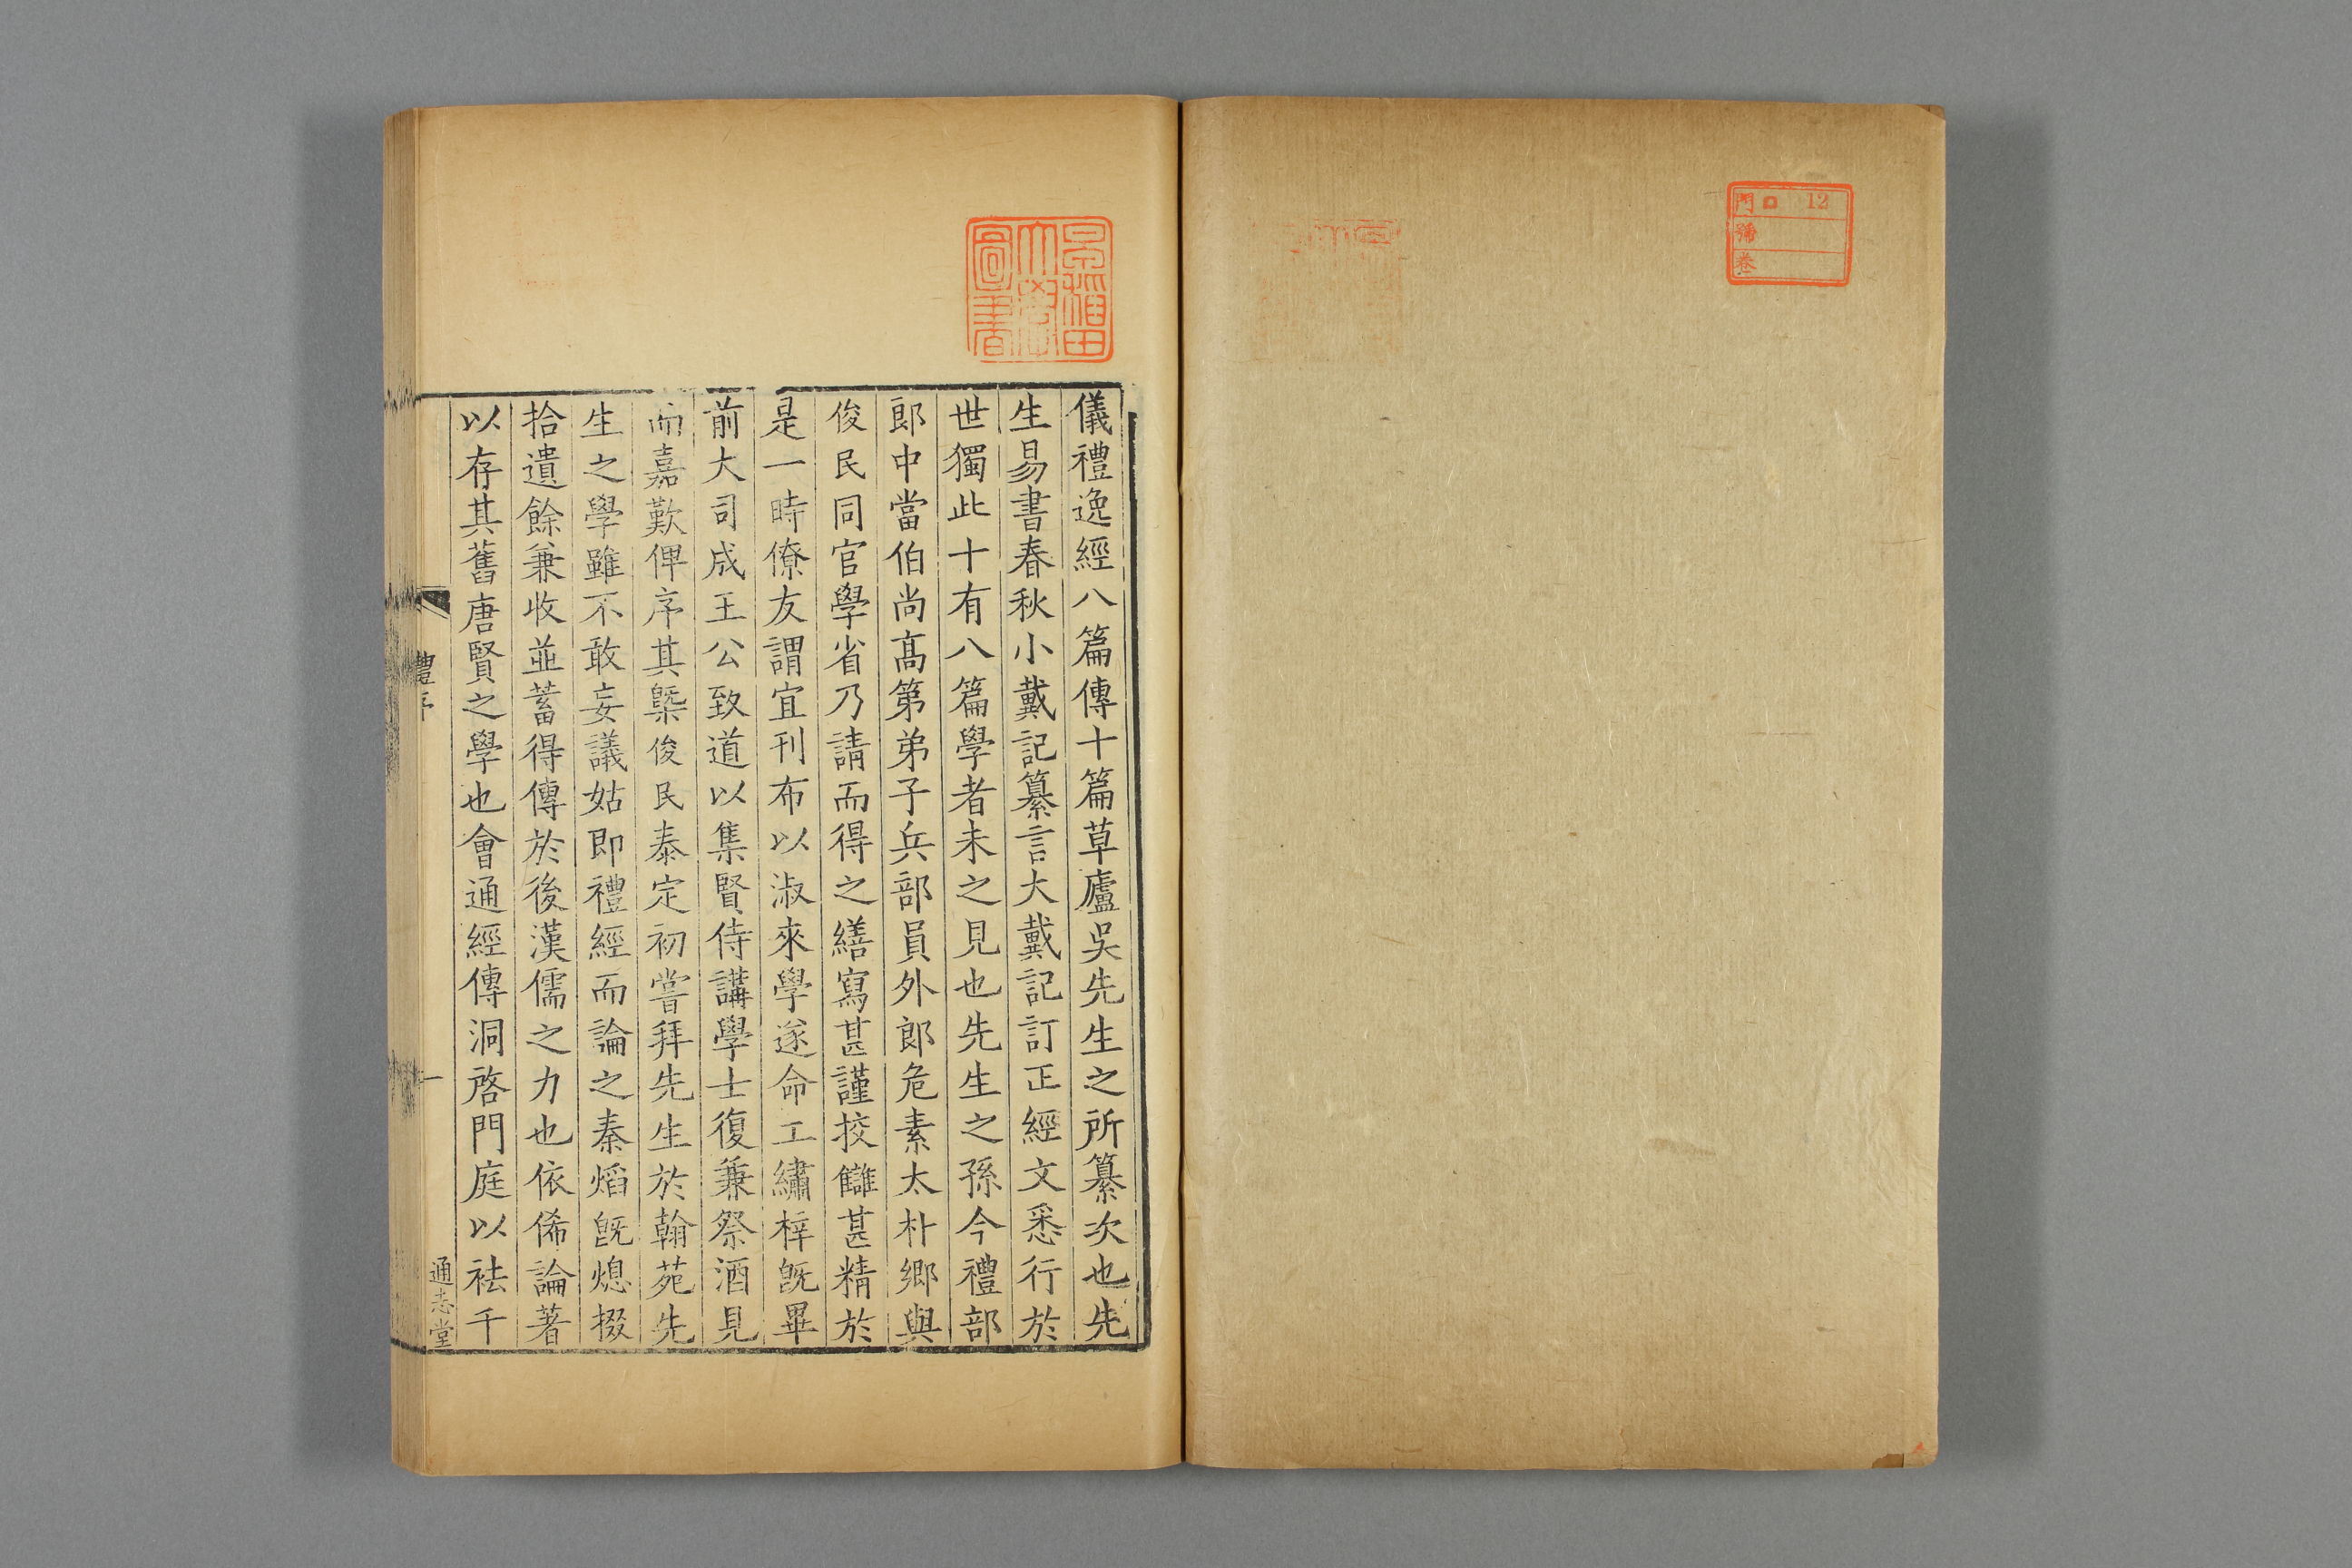 門 ロ 12
號
卷
早稲田
大學
圖書
儀禮逸經八篇傳十篇草廬吳先生之所纂次也先
生易書春秋小戴記纂言大戴記訂正經文悉行於
世獨此十有八篇學者未之見也先生之孫今禮部
郎中當伯尚高第弟子兵部員外郎危素太朴鄉與
俊民同官學省乃請而得之繕寫甚謹挍讎甚精於
是一時僚友謂宜刊布以淑來學遂命工繡梓旣畢
前大司成王公致道以集賢侍講學士復兼祭酒見
而嘉歎俾序其槩俊民泰定初嘗拜先生於翰苑先
生之學雖不敢妄議姑即禮經而論之秦熖旣熄掇
拾遺餘兼收並蓄得傳於後漢儒之力也依俙論著
以存其舊唐賢之學也會通經傳洞啓門庭以袪千
禮序
一
通志堂